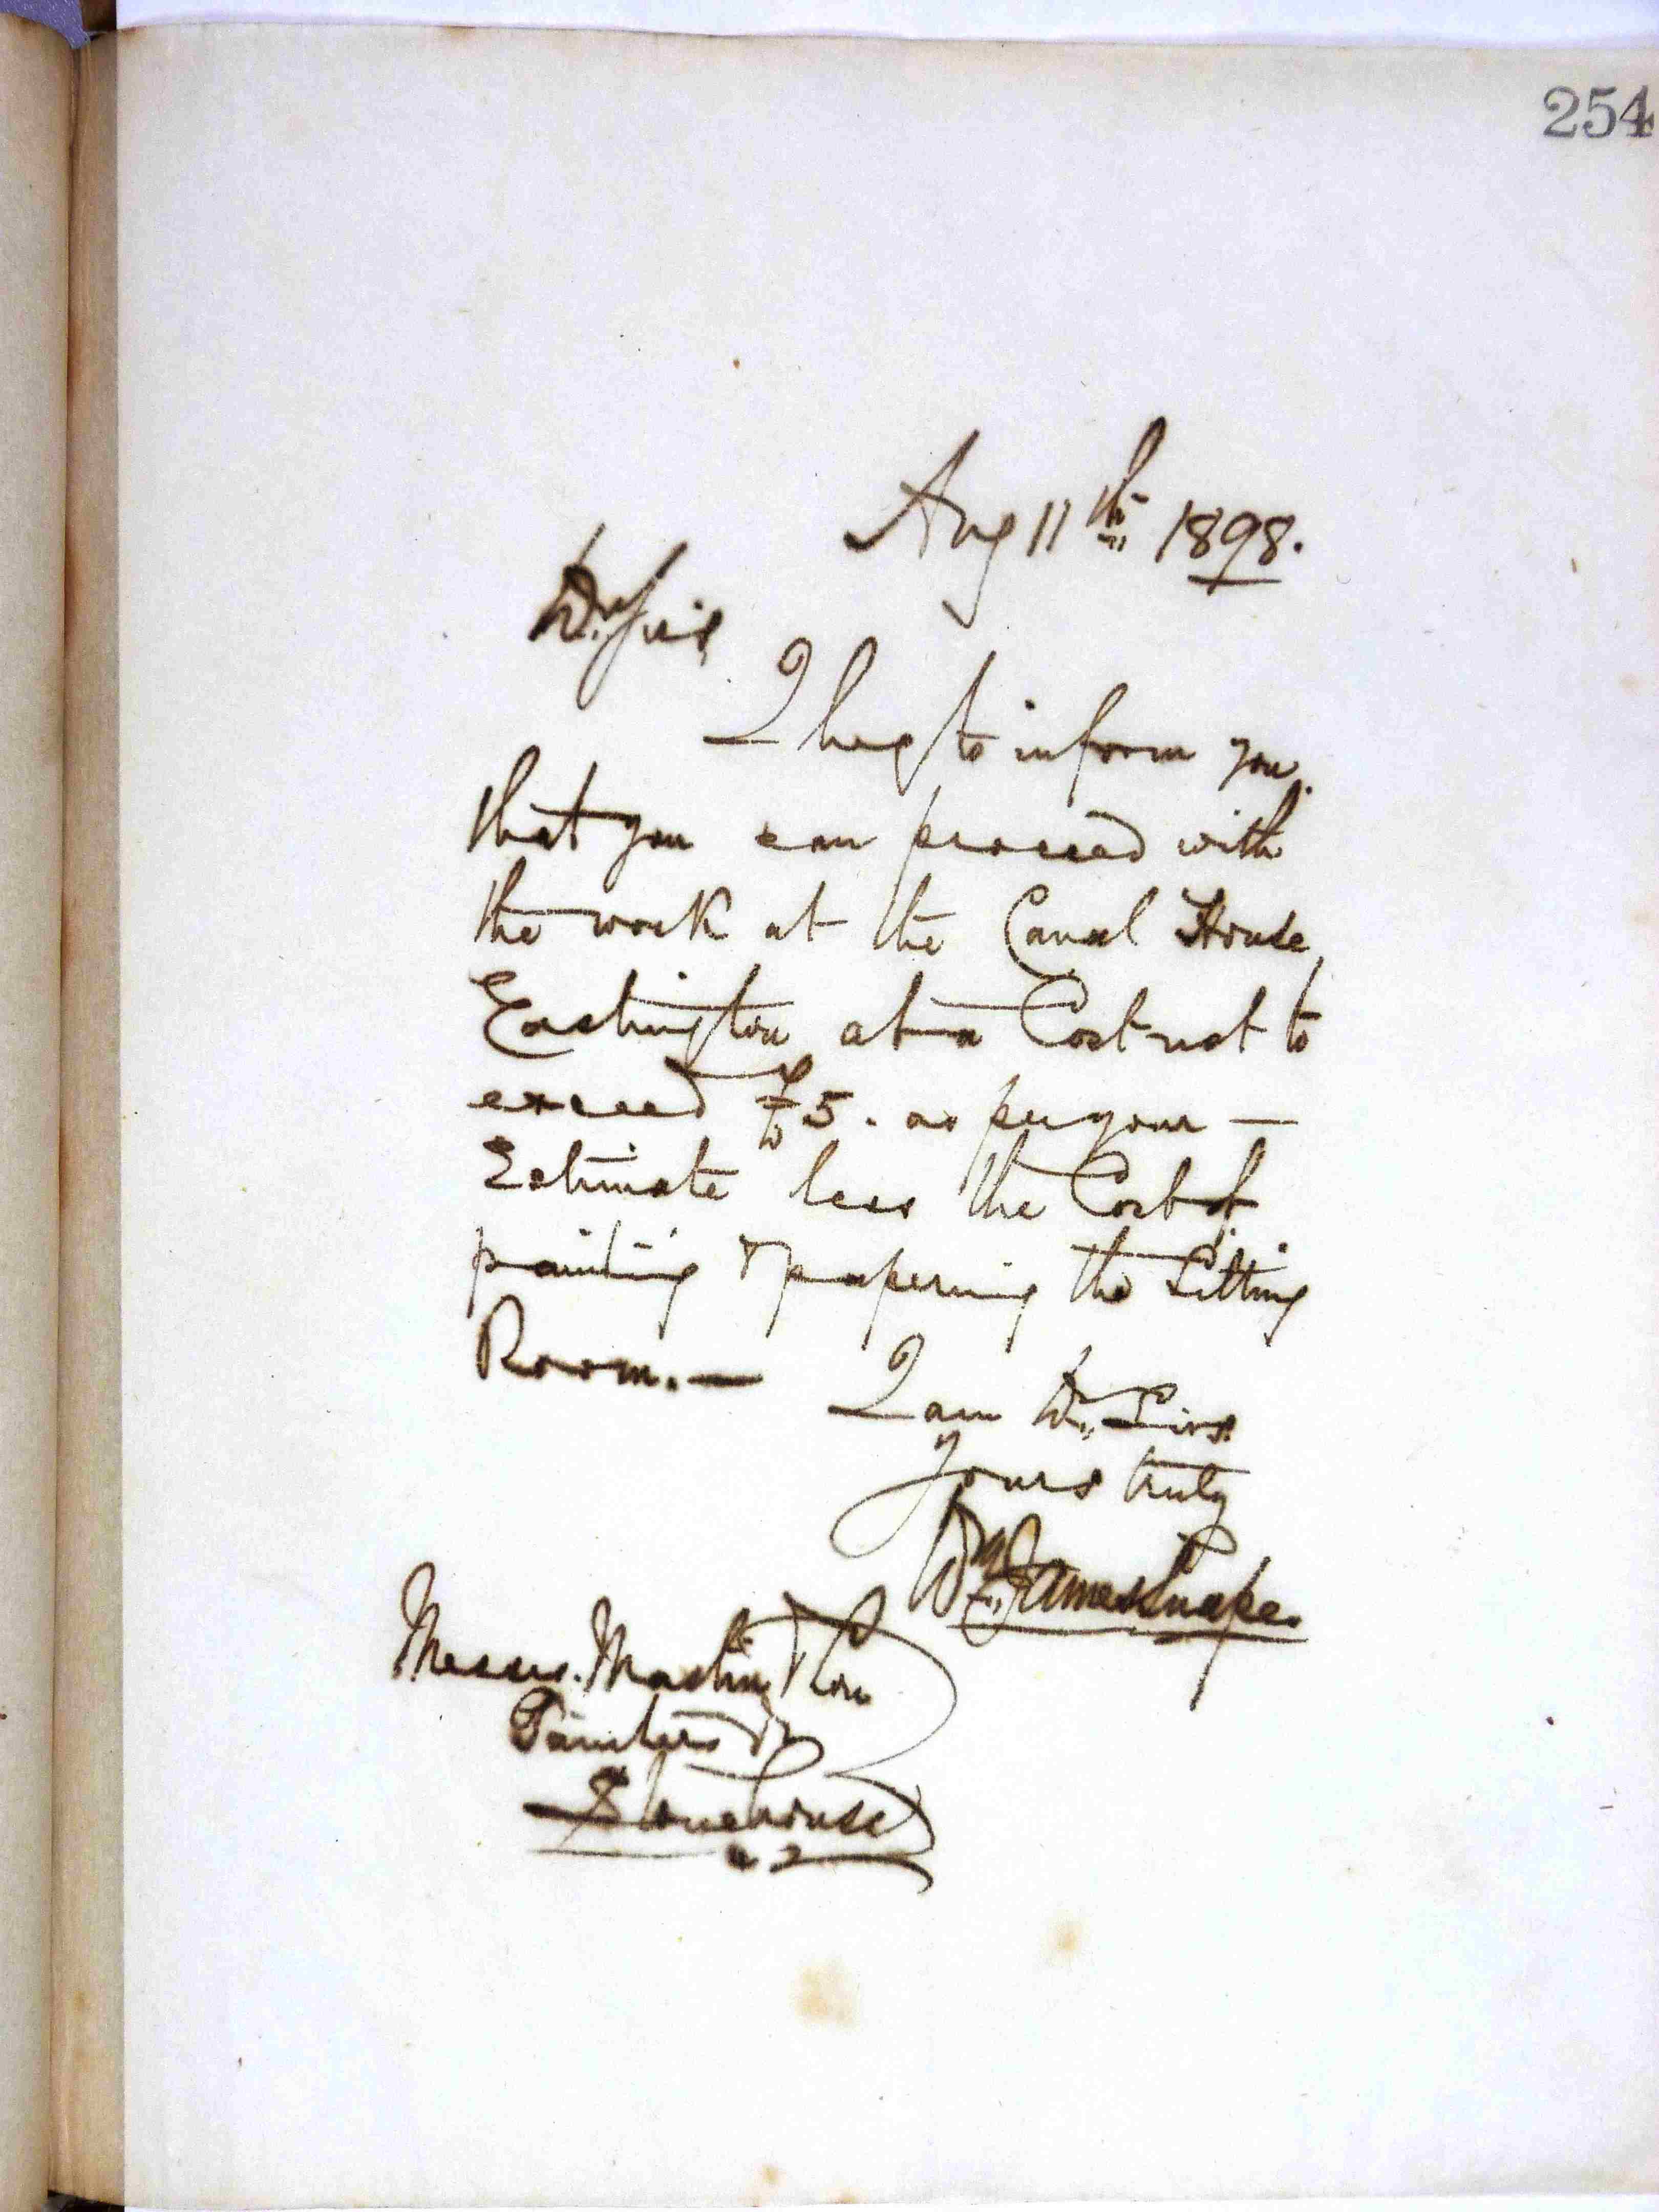 254
Aug 11th 1898.
Dr Sirs,
I beg to inform you
that you can proceed with
the work at the Canal House,
Eastington at a Cost not to
exceed £5. as per your —
Estimate less the Cost of
painting & papering the Sitting
Room. —
I am Dr Sirs.
Yours truly
Wm James Snape.
Messrs. Mastin & Son
Painters &c
Stonehouse